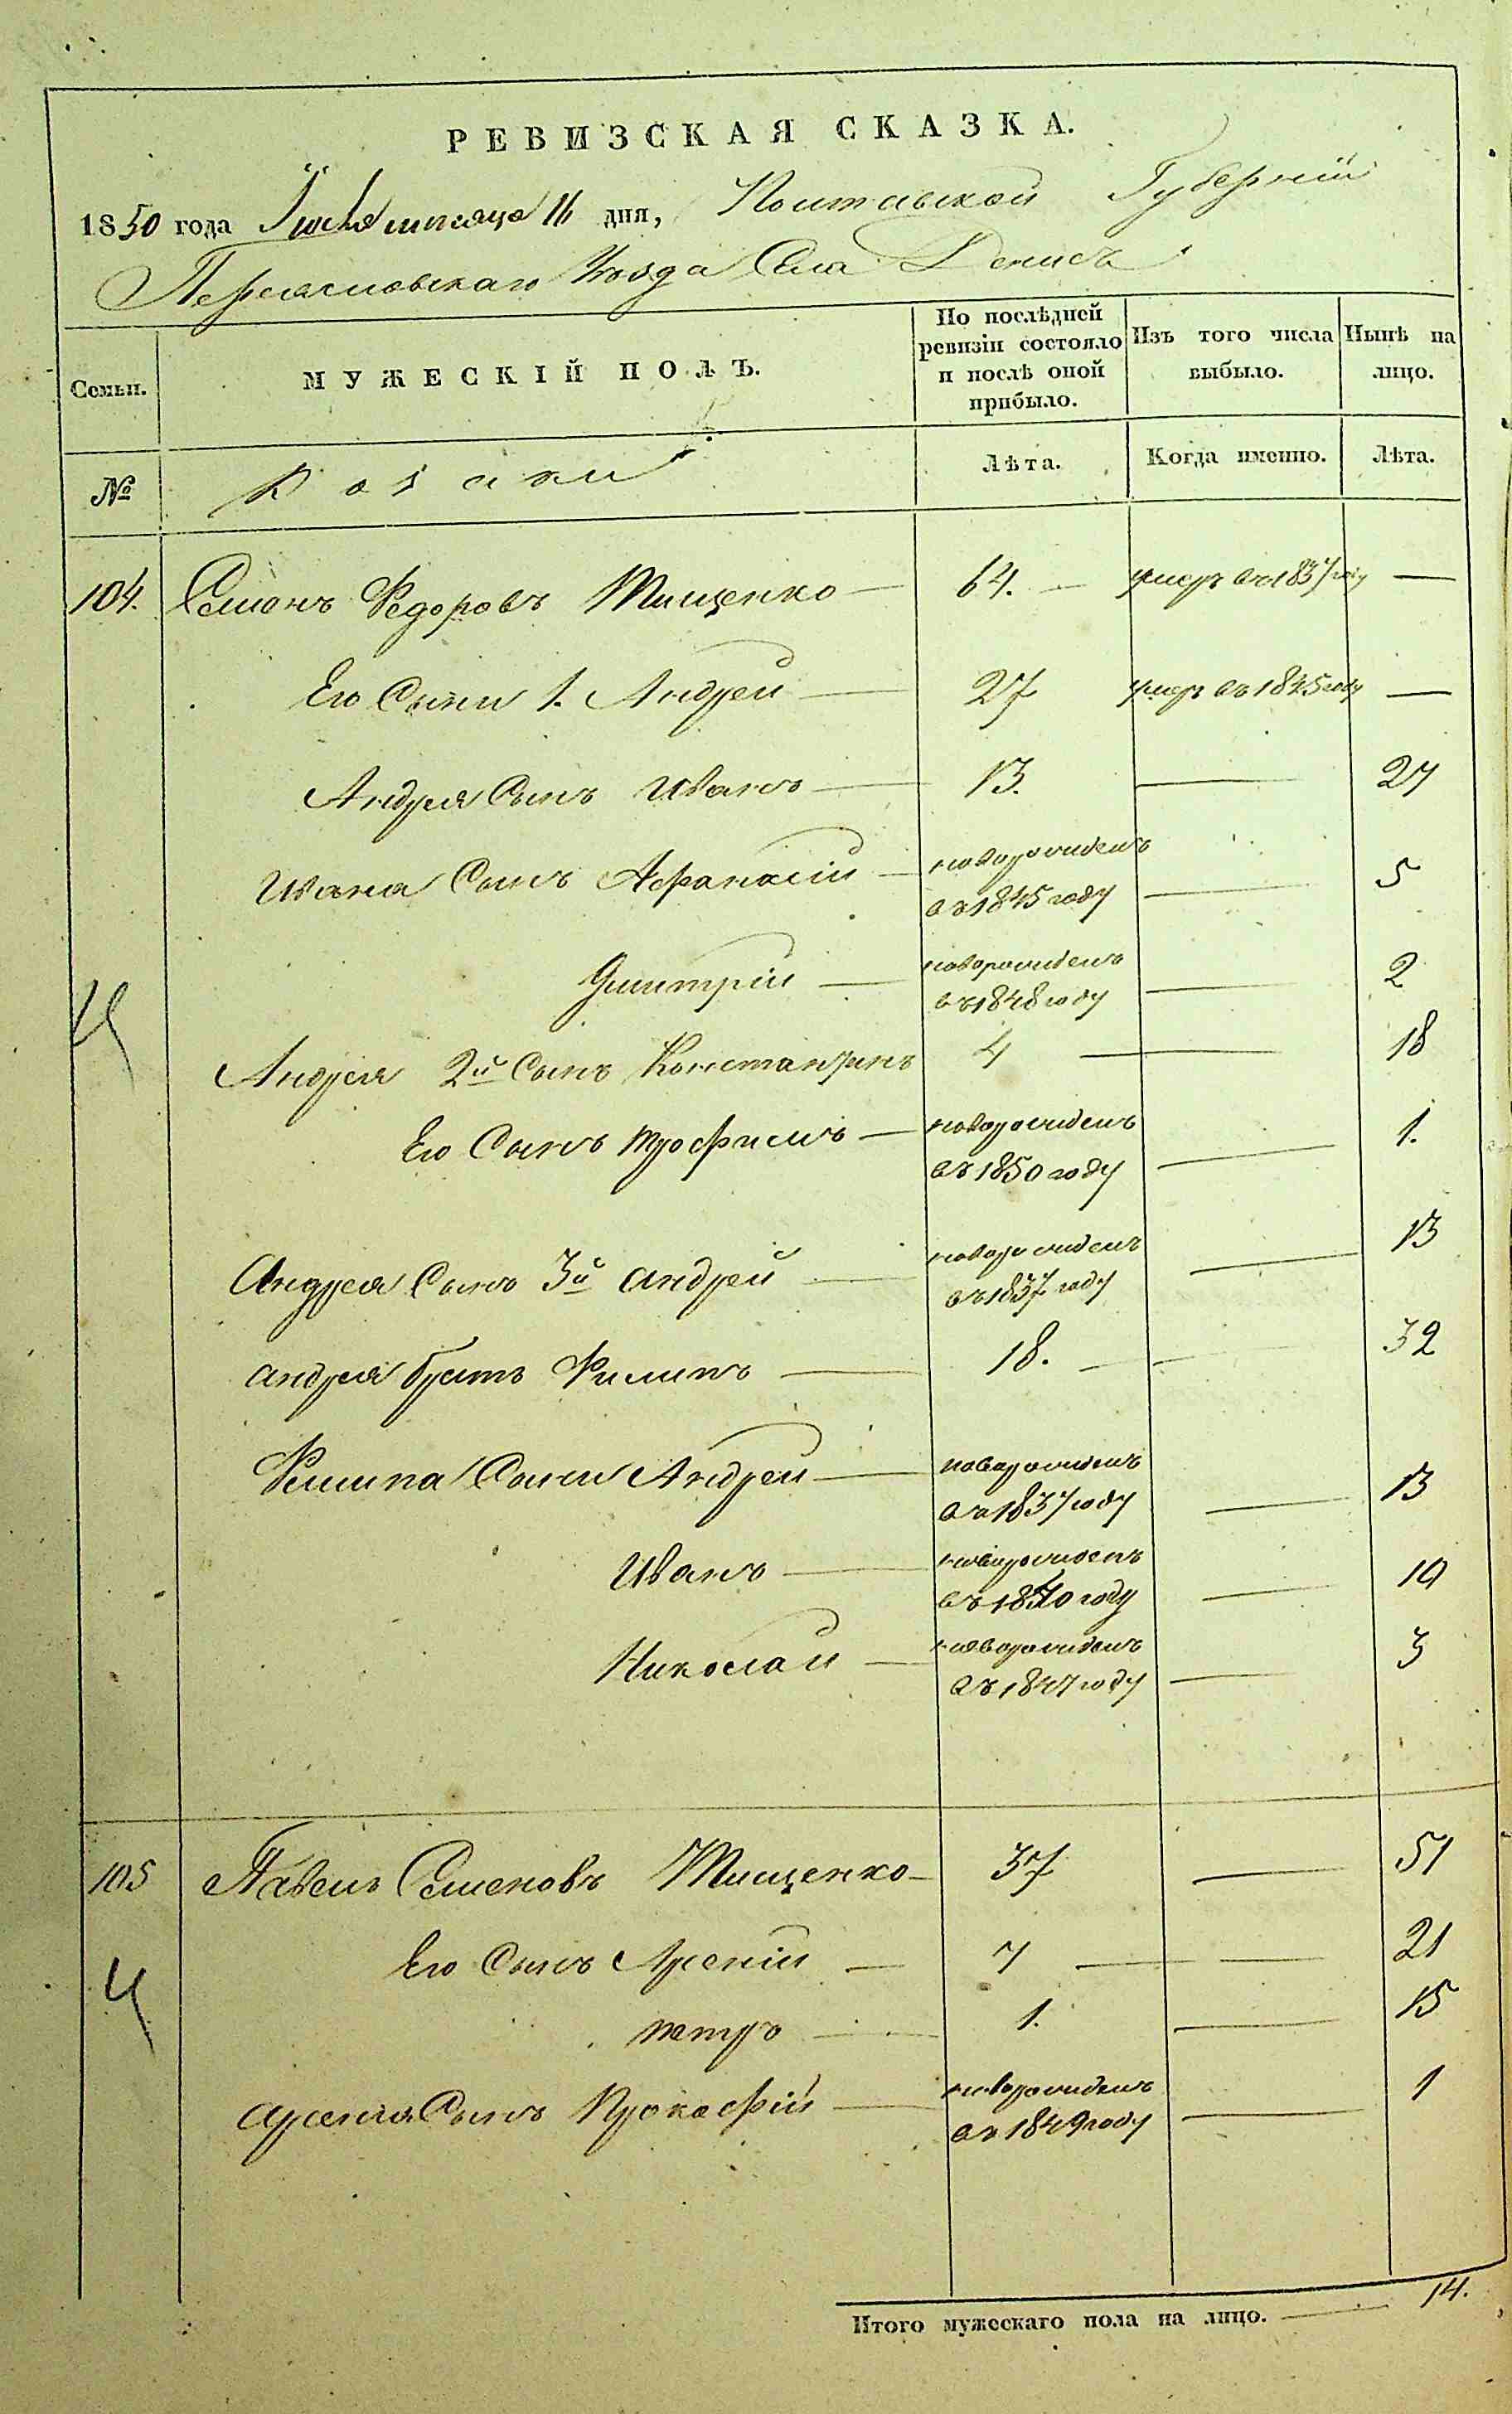 РЕВИЗСКАЯ СКАЗКА.
1850 года Іюля мѣсяца 11 дня, Полтавской Губерніи
Переяславскаго Уѣзда Села Денисъ
Семьи. МУЖЕСКІЙ ПОЛЪ. По послѣдней ревизіи состояло и послѣ оной прибыло. Изъ того числа выбыло. Нынѣ на лицо.
№ Козаки Лѣта. Когда именно. Лѣта.
104. Семонъ Федоровъ Тищенко — 64. — умеръ въ 1837 году —
Его Сыни 1. Андрей — 27 умеръ въ 1845 году —
Андрея Сынъ Иванъ — 13. — 27
Ивана Сынъ Афанасій — новорожденъ въ 1845 году — 5
Дмитрій — новорожденъ въ 1848 году — 2
Ч
Андрея 2й Сынъ Константинъ 4 — 18
Его Сынъ Трофимъ — новорожденъ въ 1850 году — 1.
Андрея Сынъ 3й Андрей — новорожденъ въ 1837 году — 13
Андрея братъ Филипъ — 18. — 32
Филипа Сыни Андрей — новорожденъ въ 1837 году — 13
Иванъ — новорожденъ въ 1840 году — 10
Николай — новорожденъ въ 1847 году — 3
105 Павелъ Семеновъ Тищенко — 37 — 51
Его Сынъ Арсеній — 7 — 21
Ч
Петръ — 1. — 15
Арсенія Сынъ Прокофій — новорожденъ въ 1849 году — 1
Итого мужескаго пола на лицо. — 14.